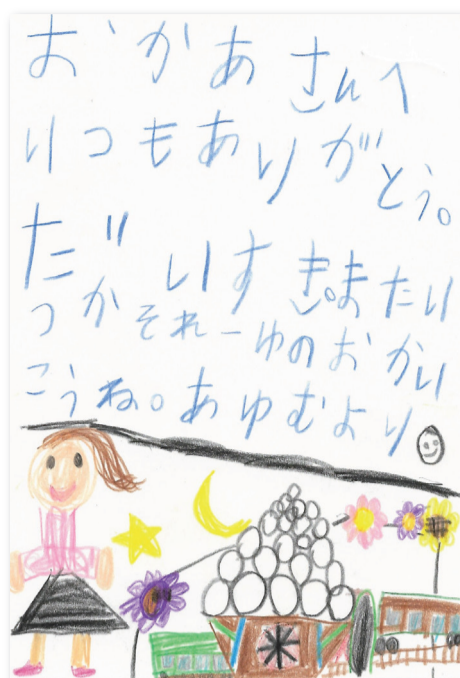 おかあさんへ
いつもありがとう。
だいすき。またい
つかそれーゆのおかい
こうね。あゆむより